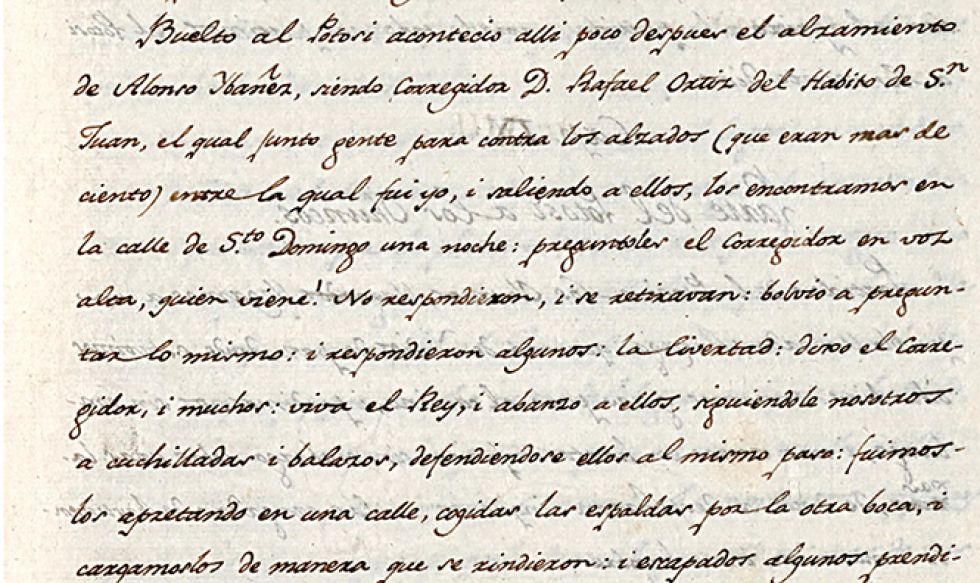 Buelto al Potosi acontecio alli poco despues el alzamiento
de Alonso Ybañez, siendo Corregidor D. Rafael Ortiz del Habito de S.n
Juan, el qual junto gente para contra los alzados (que eran mas de
ciento) entre la qual fui yo, i saliendo a ellos, los encontramos en
la calle de S.to Domingo una noche: preguntoles el Corregidor en voz
alta, quien viene! No respondieron, i se retiravan: bolvio a pregun-
tar lo mismo: i respondieron algunos: la livertad: dixo el Corre-
gidor, i muchos: viva el Rey, i abanzo a ellos, siguiendole nosotros
a cuchilladas i balazos, defendiendose ellos al mismo paso: fuimos-
los apretando en una calle, cogidas las espaldas por la otra boca, i
cargamoslos de manera que se rindieron: i escapados algunos prendi-